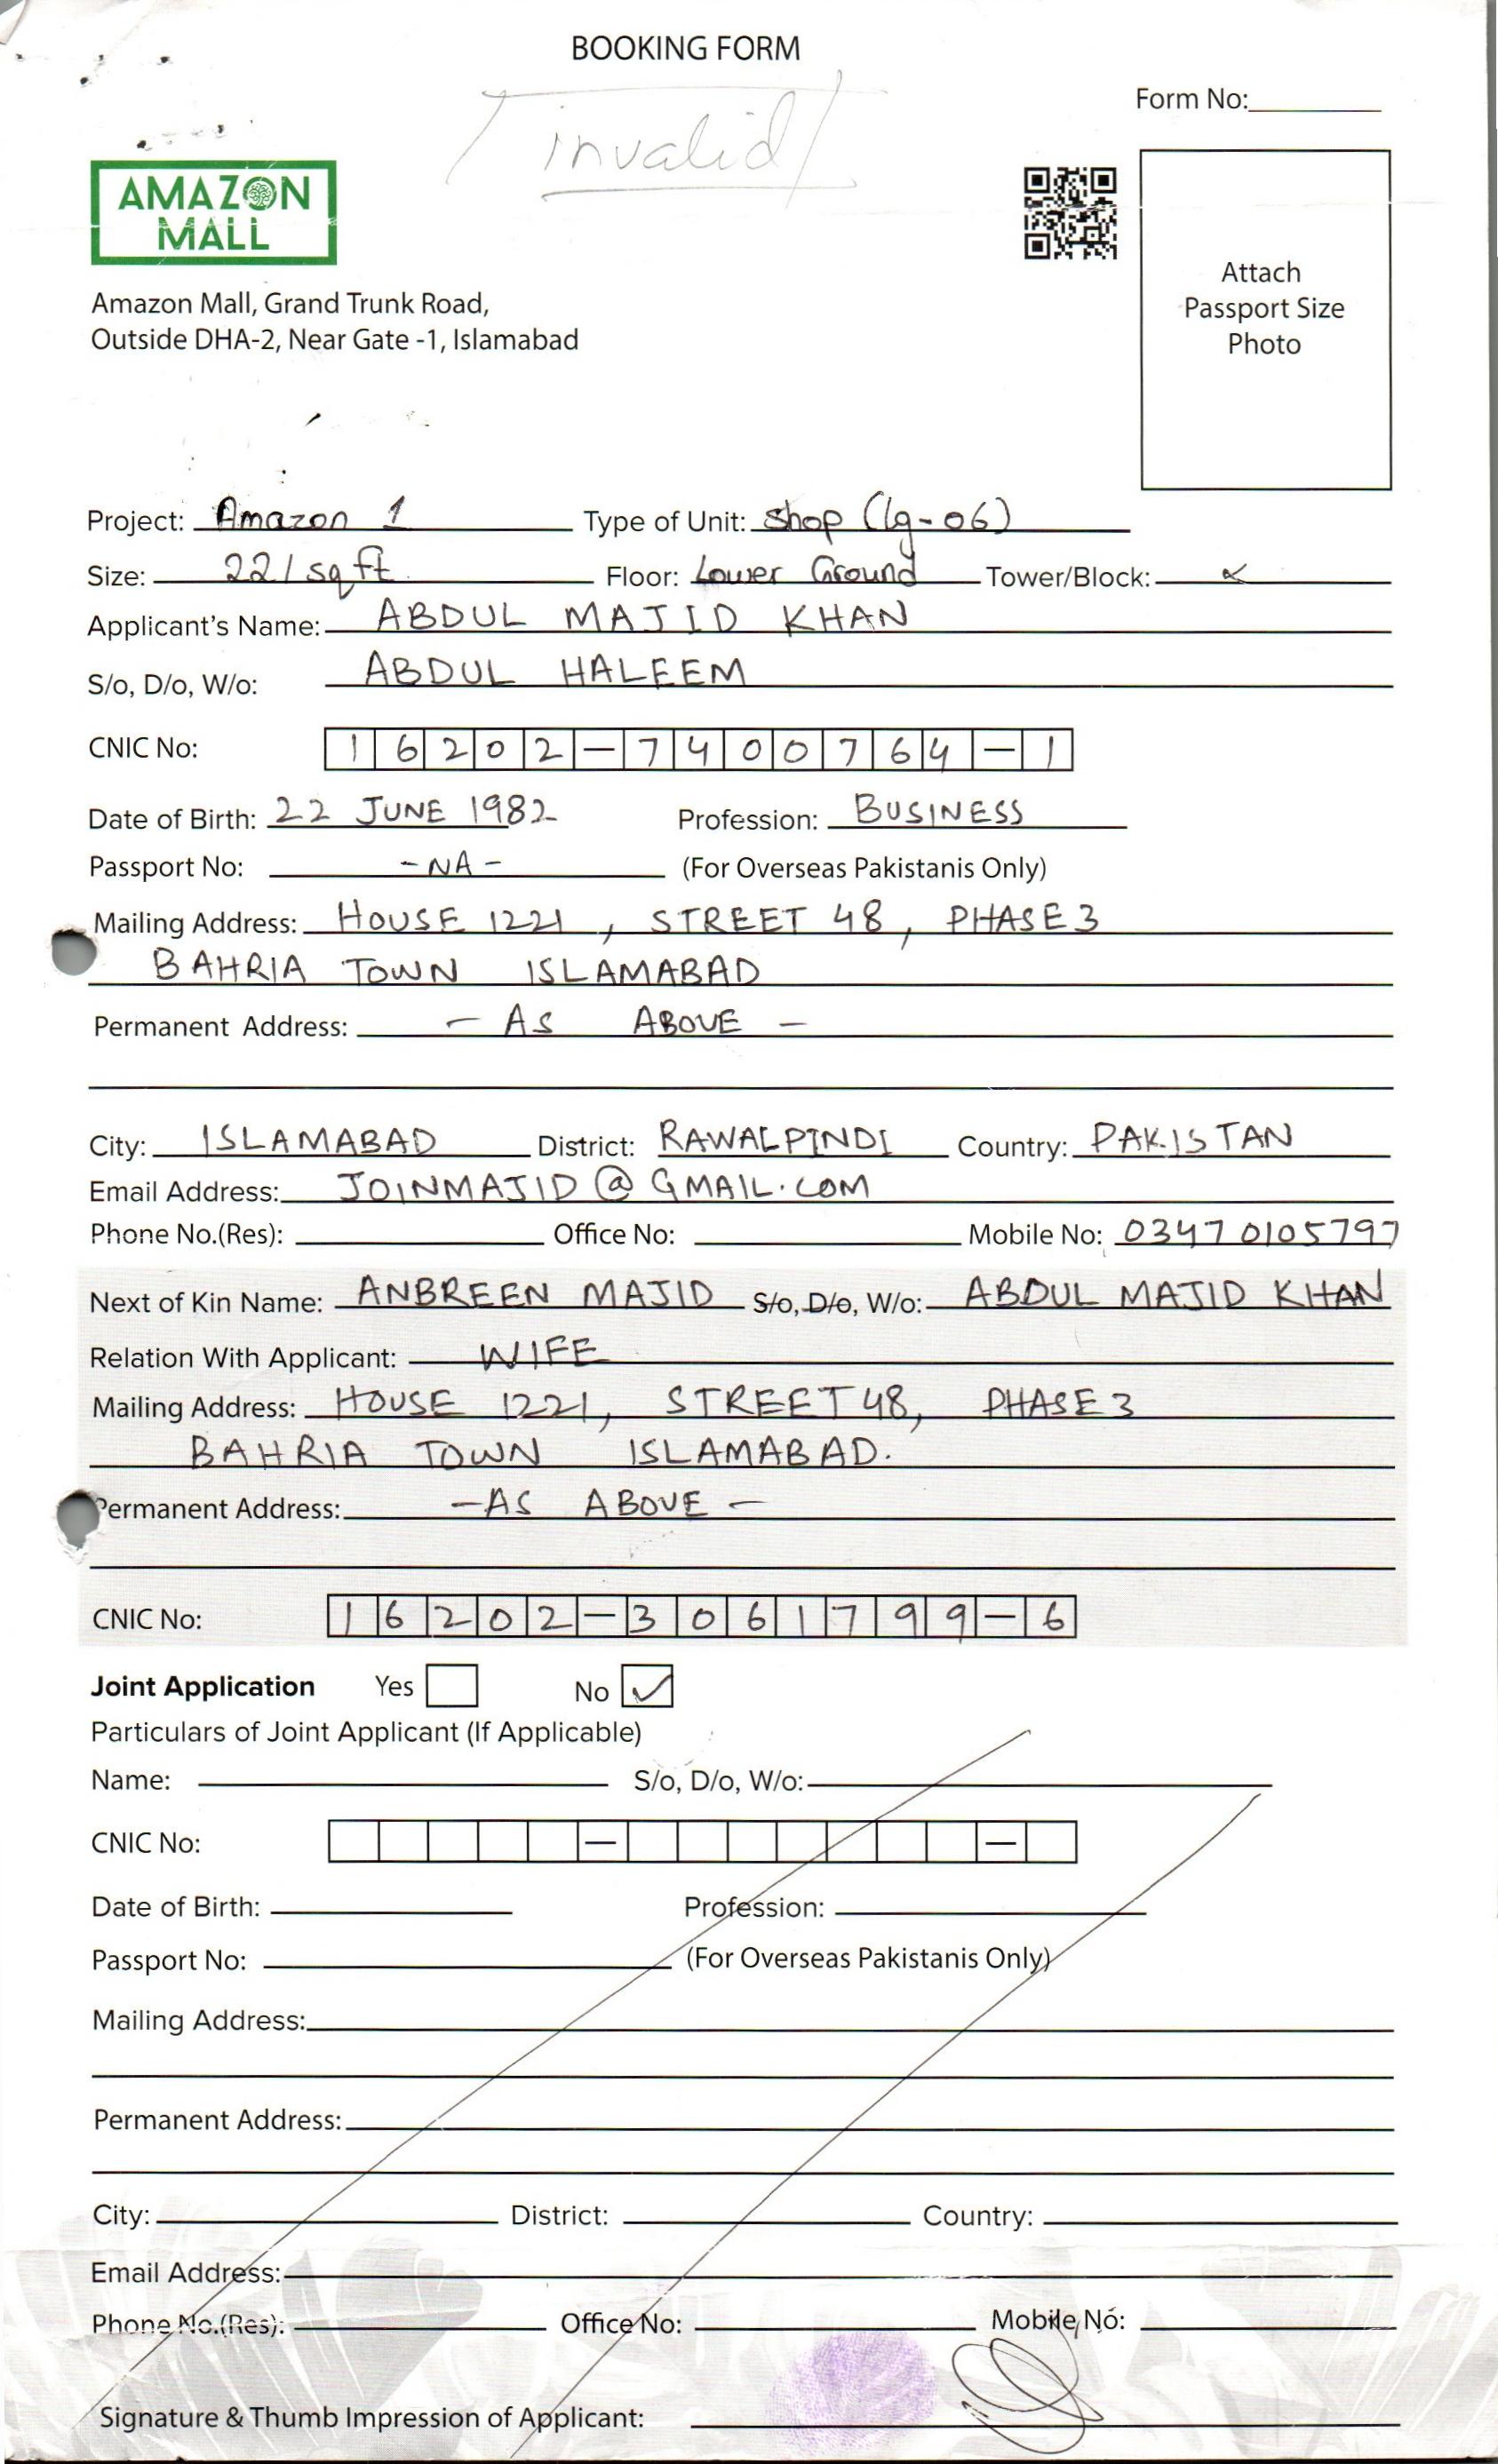 BOOKING FORM
invalid
Form No:
AMAZON
MALL
Attach
Passport Size
Photo
Amazon Mall, Grand Trunk Road,
Outside DHA-2, Near Gate -1, Islamabad
Project: Amazon 1 Type of Unit: Shop (lg-06)
Size: 221 sq ft Floor: Lower Ground Tower/Block:
Applicant's Name: ABDUL MAJID KHAN
S/o, D/o, W/o: ABDUL HALEEM
CNIC No: 16202-7400764-1
Date of Birth: 22 JUNE 1982 Profession: BUSINESS
Passport No: -NA- (For Overseas Pakistanis Only)
Mailing Address: HOUSE 1221, STREET 48, PHASE 3
BAHRIA TOWN ISLAMABAD
Permanent Address: - AS ABOVE -
City: ISLAMABAD District: RAWALPINDI Country: PAKISTAN
Email Address: JOINMAJID@GMAIL.COM
Phone No.(Res): Office No: Mobile No: 03470105797
Next of Kin Name: ANBREEN MAJID S/o, D/o, W/o: ABDUL MAJID KHAN
Relation With Applicant: WIFE
Mailing Address: HOUSE 1221, STREET 48, PHASE 3
BAHRIA TOWN ISLAMABAD.
Permanent Address: -AS ABOVE -
CNIC No: 16202-3061799-6
Joint Application Yes No ✓
Particulars of Joint Applicant (If Applicable)
Name: S/o, D/o, W/o:
CNIC No: — —
Date of Birth: Profession:
Passport No: (For Overseas Pakistanis Only)
Mailing Address:
Permanent Address:
City: District: Country:
Email Address:
Phone No.(Res): Office No: Mobile No:
Signature & Thumb Impression of Applicant: